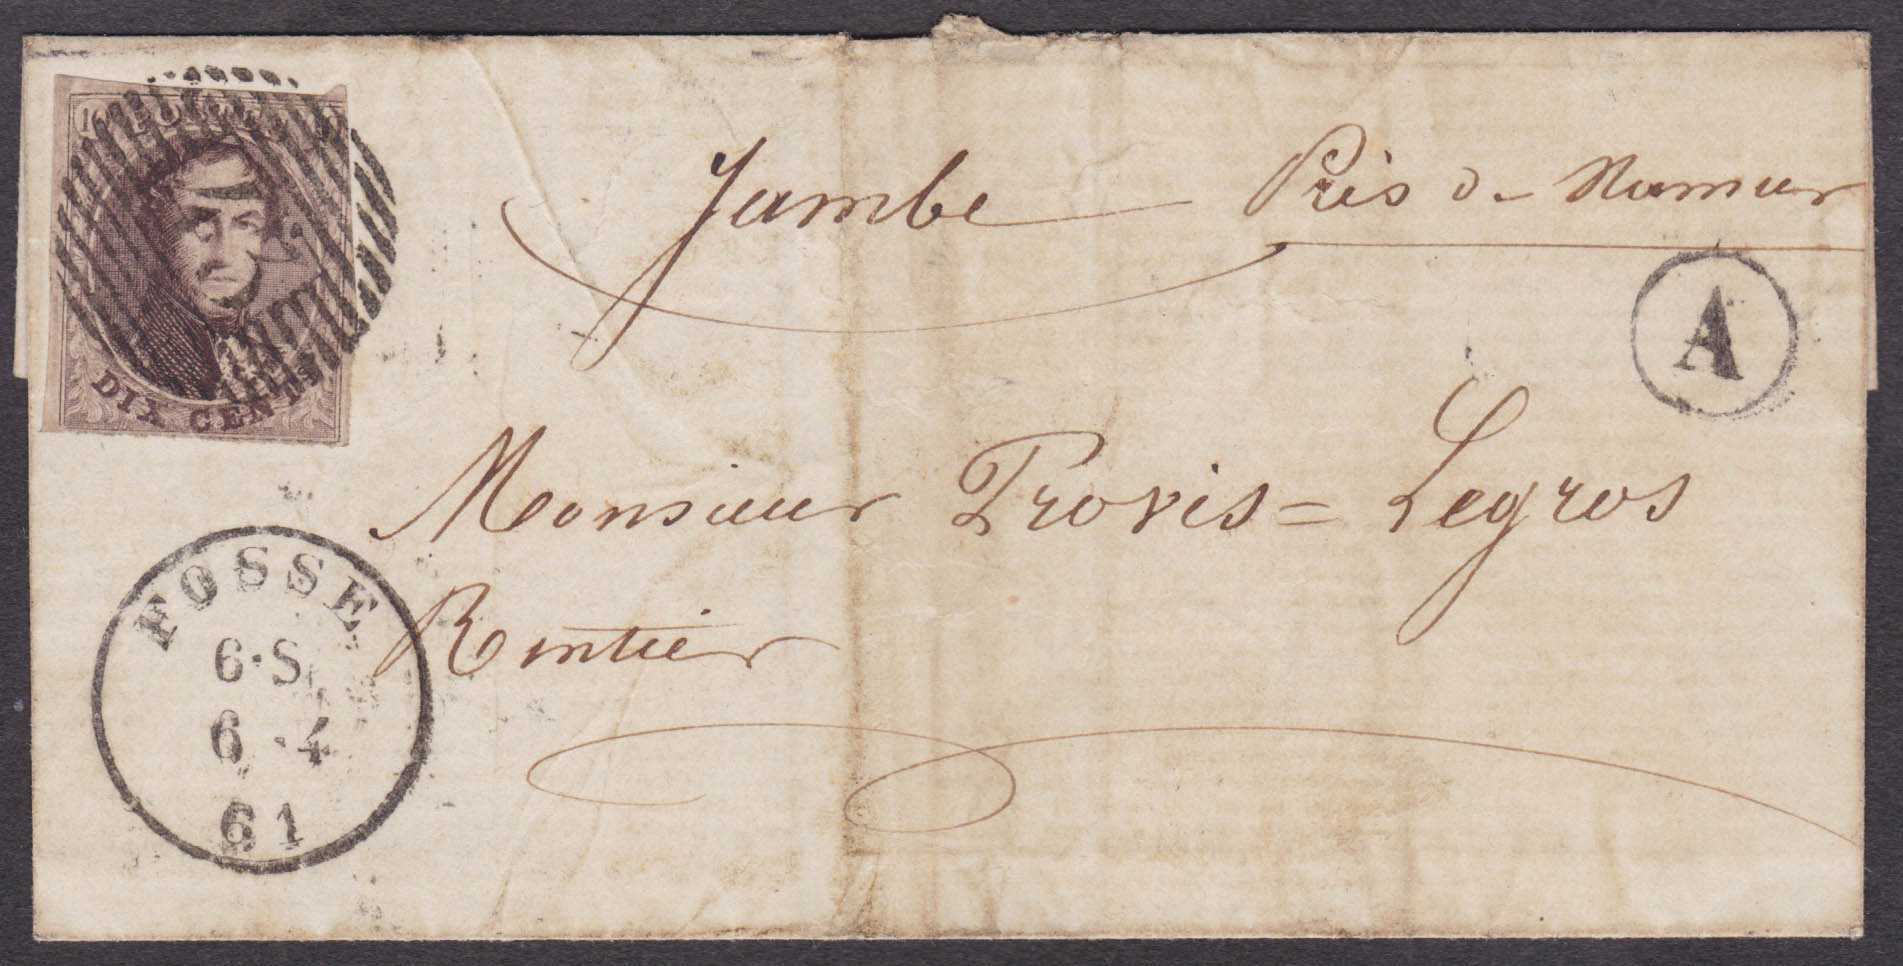 10 POSTES 10
DIX CENTS
Jambe Près de Namur
A
Monsieur Provis=Legros
Rentier
FOSSE
6·S
6·4
61